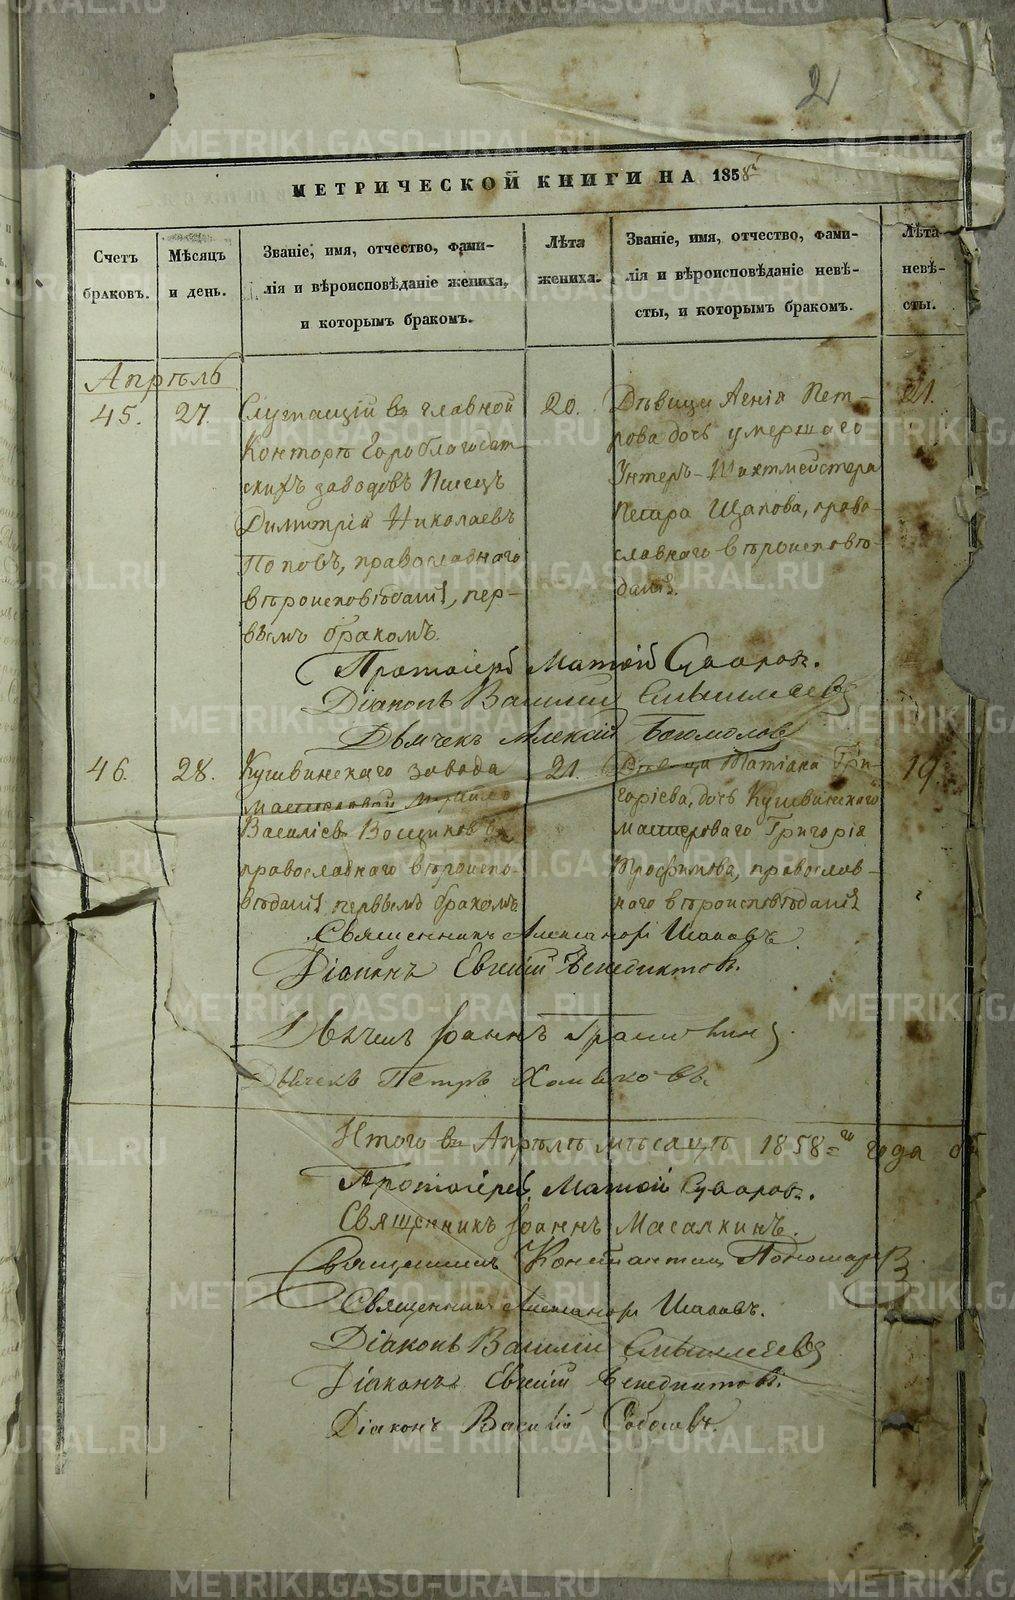 2
МЕТРИЧЕСКОЙ КНИГИ НА 1858
Счетъ
браковъ.
Мѣсяцъ
и день.
Званіе, имя, отчество, фами-
лія и вѣроисповѣданіе жениха,
и которымъ бракомъ.
Лѣта
жениха.
Званіе, имя, отчество, фами-
лія и вѣроисповѣданіе невѣ-
сты, и которымъ бракомъ.
Лѣта
невѣ-
сты.
Апрѣль
45.
27.
Служащій въ главной
Конторѣ Гороблагодат
скихъ заводовъ Писецъ
Димитрій Николаевъ
Поповъ, православнаго
вѣроисповѣданія, пер-
вымъ бракомъ.
20.
Дѣвица Агнія Пет-
рова дочь умершаго
Унтеръ-Шихтмейстера
Петра Щапова, право-
славнаго вѣроисповѣ-
данія.
21.
Протоіерей Матѳій
Діаконъ Василій
Дьячекъ Алексій Богомолов
46.
28.
Кушвинскаго завода
мастеровой
Василіевъ
православнаго вѣроиспо-
вѣданія первымъ бракомъ
21.
Дѣвица Татіана Гри-
горіева, дочь Кушвинскаго
мастероваго Григорія
Трофимова, православ-
наго вѣроисповѣданія
19.
Священникъ Александръ
Діаконъ Евгеній Бенедиктов.
Іоаннъ
Дьячекъ Петръ Хомяковъ.
Итого въ Апрѣлѣ мѣсяцѣ 1858 = го года
Протоіерей Матѳій
Священникъ Іоаннъ Масалкинъ.
Священникъ Константин Пономарев
Священникъ Александръ
Діаконъ Василій
Діаконъ Евгеній Бенедиктов.
Діаконъ Василій